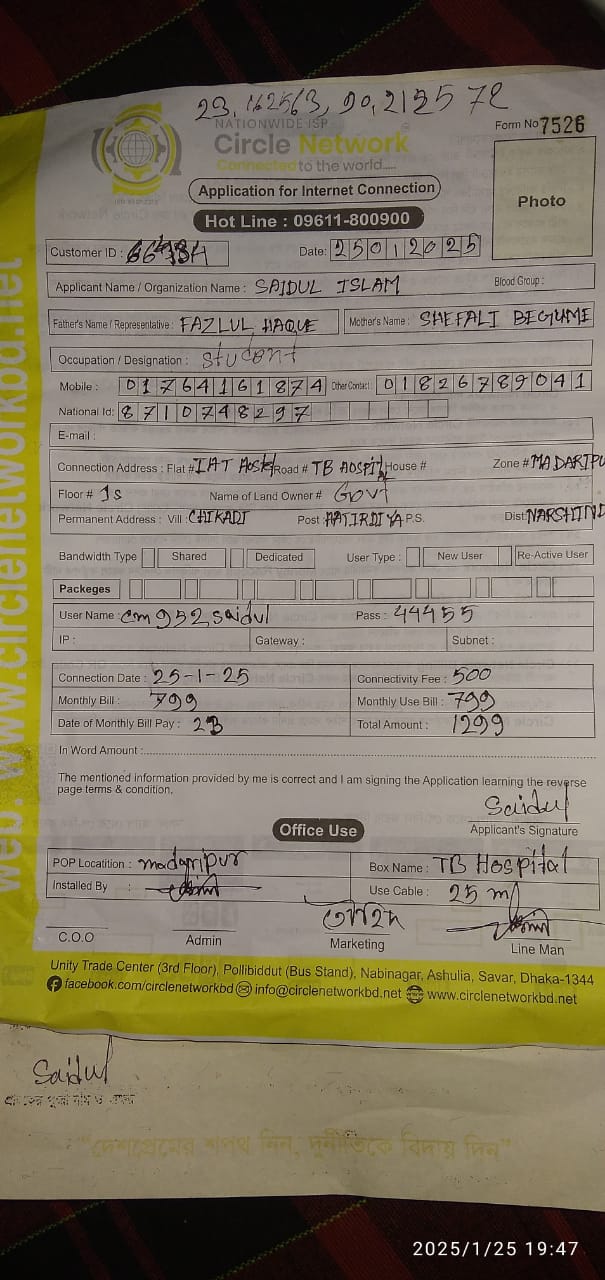 23.162563, 90.212572
NATIONWIDE ISP
Circle Network
Connected to the world.....
Form No 7526
Photo
Application for Internet Connection
Hot Line : 09611-800900
Customer ID :
Date: 25012025
Applicant Name / Organization Name : SAIDUL ISLAM Blood Group :
Father's Name / Representative : FAZLUL HAQUE Mother's Name : SHEFALI BEGUME
Occupation / Designation : Student
Mobile : 01764161874 Other Contact : 01826789041
National Id: 8710748297
E-mail :
Connection Address : Flat # IAT Hostel Road # TB HOSPITAL House # Zone # MADARIPU
Floor # 1s Name of Land Owner # GOVT
Permanent Address : Vill : CHIKADI Post : HATIRDIYA P.S. Dist: NARSHIND
Bandwidth Type Shared Dedicated User Type : New User Re-Active User
Packeges
User Name : cm952saidul Pass : 44455
IP : Gateway : Subnet :
Connection Date : 25-1-25 Connectivity Fee : 500
Monthly Bill : 799 Monthly Use Bill : 799
Date of Monthly Bill Pay : 23 Total Amount : 1299
In Word Amount :
The mentioned information provided by me is correct and I am signing the Application learning the reverse
page terms & condition.
Saidul
Applicant's Signature
Office Use
POP Locatition : madaripur Box Name : TB Hospital
Installed By : Use Cable : 25 m
C.O.O Admin Marketing Line Man
Unity Trade Center (3rd Floor), Pollibiddut (Bus Stand), Nabinagar, Ashulia, Savar, Dhaka-1344
facebook.com/circlenetworkbd info@circlenetworkbd.net www.circlenetworkbd.net
web: www.circlenetworkbd.net
Saidul
"দেশপ্রেমের শপথ নিন, দুর্নীতিকে বিদায় দিন"
2025/1/25 19:47